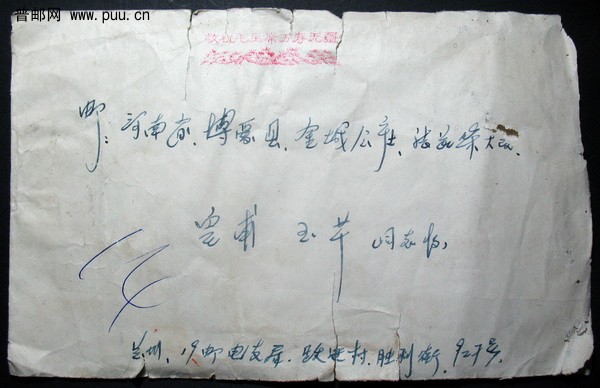 普邮网 www.puu.cn
敬祝毛主席万寿无疆
邮: 河南省、博爱县、金城公社、张茹集大队、
玉芹 同志收
兰州、19邮电支局、跃进村、胜利街、927号、